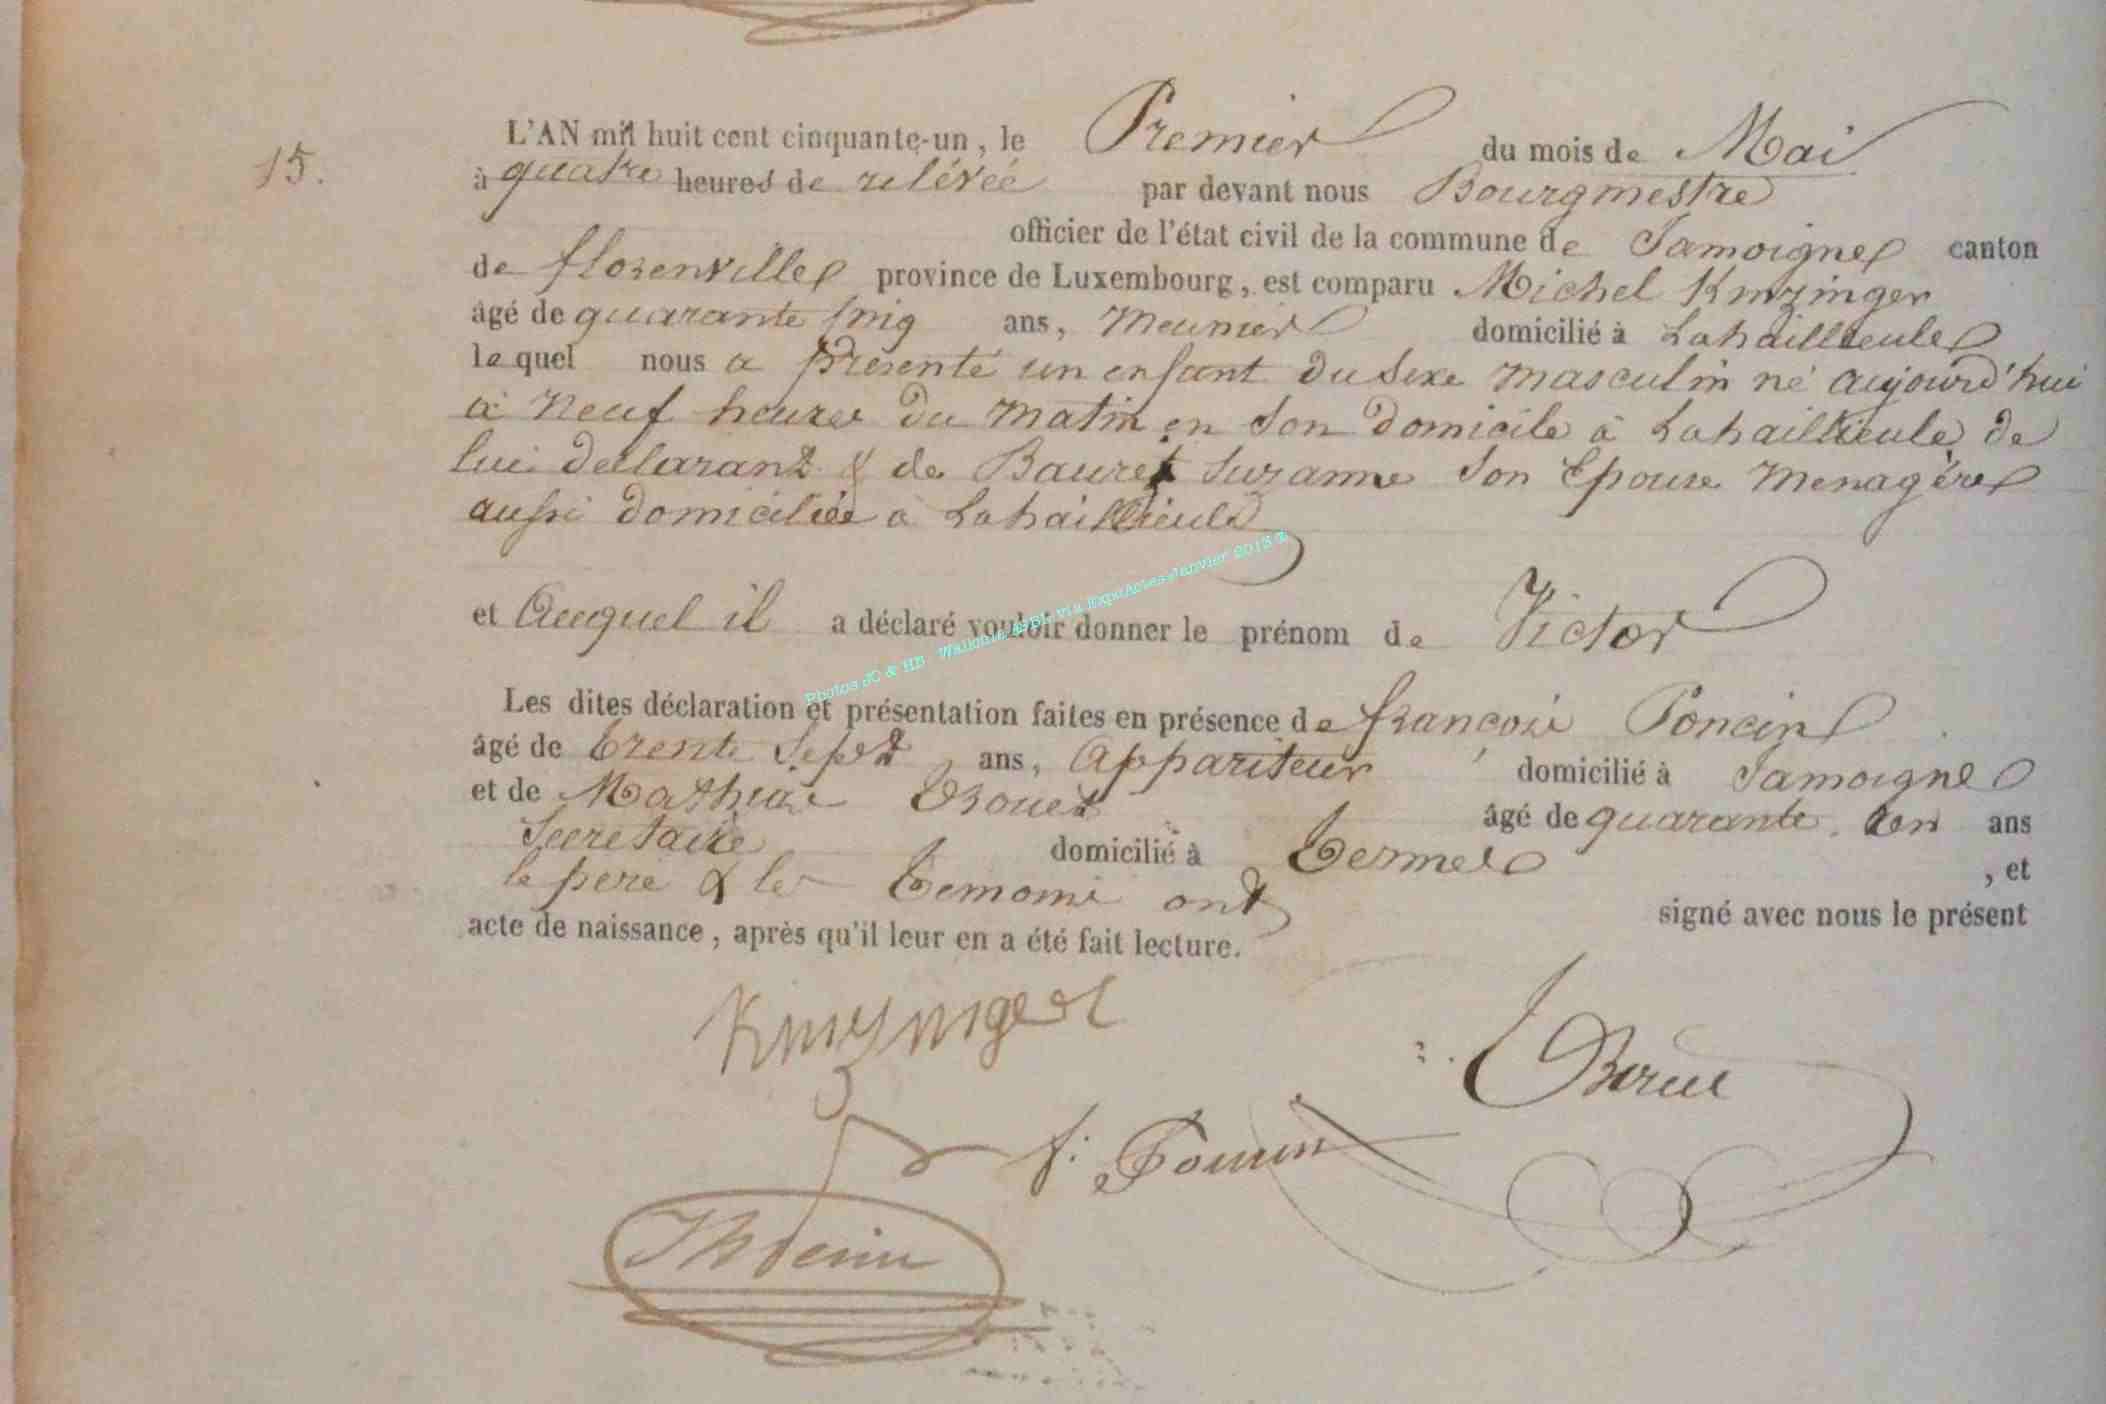 15.
L'AN mil huit cent cinquante-un, le Premier du mois de Mai
à quatre heures de rélévée par devant nous Bourgmestre
officier de l'état civil de la commune de Jamoigne canton
de florenville province de Luxembourg, est comparu Michel Kinzinger
âgé de quarante ans, Meunier domicilié à Lahaillieule
le quel nous a présenté un enfant du sexe masculin né aujourd'hui
à neuf heures du matin en son domicile à Lahaillieule de
lui déclarant & de Bauret Suzanne son Epouse menagère
aussi domiciliée à Lahaillieule
et Auquel il a déclaré vouloir donner le prénom de Victor
Photos JC & HB Wallonie ASBL via ExpoActes Janvier 2013
Les dites déclaration et présentation faites en présence de françois Poncin
âgé de trente sept ans, Appariteur domicilié à Jamoigne
et de Mathias âgé de quarante ans
Secretaire domicilié à Termes , et
le père & les temoins ont signé avec nous le présent
acte de naissance, après qu'il leur en a été fait lecture.
Kinzinger
f. Poncin